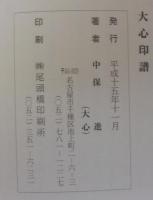 大心印譜
発行 平成十五年十一月
著者 中保進
(大心)
名古屋市千種区池上町二‐六‐三
(〇五二)七八一‐一二二七
印刷 ㈱尾頭橋印刷所
(〇五二)三五一‐六〇三一